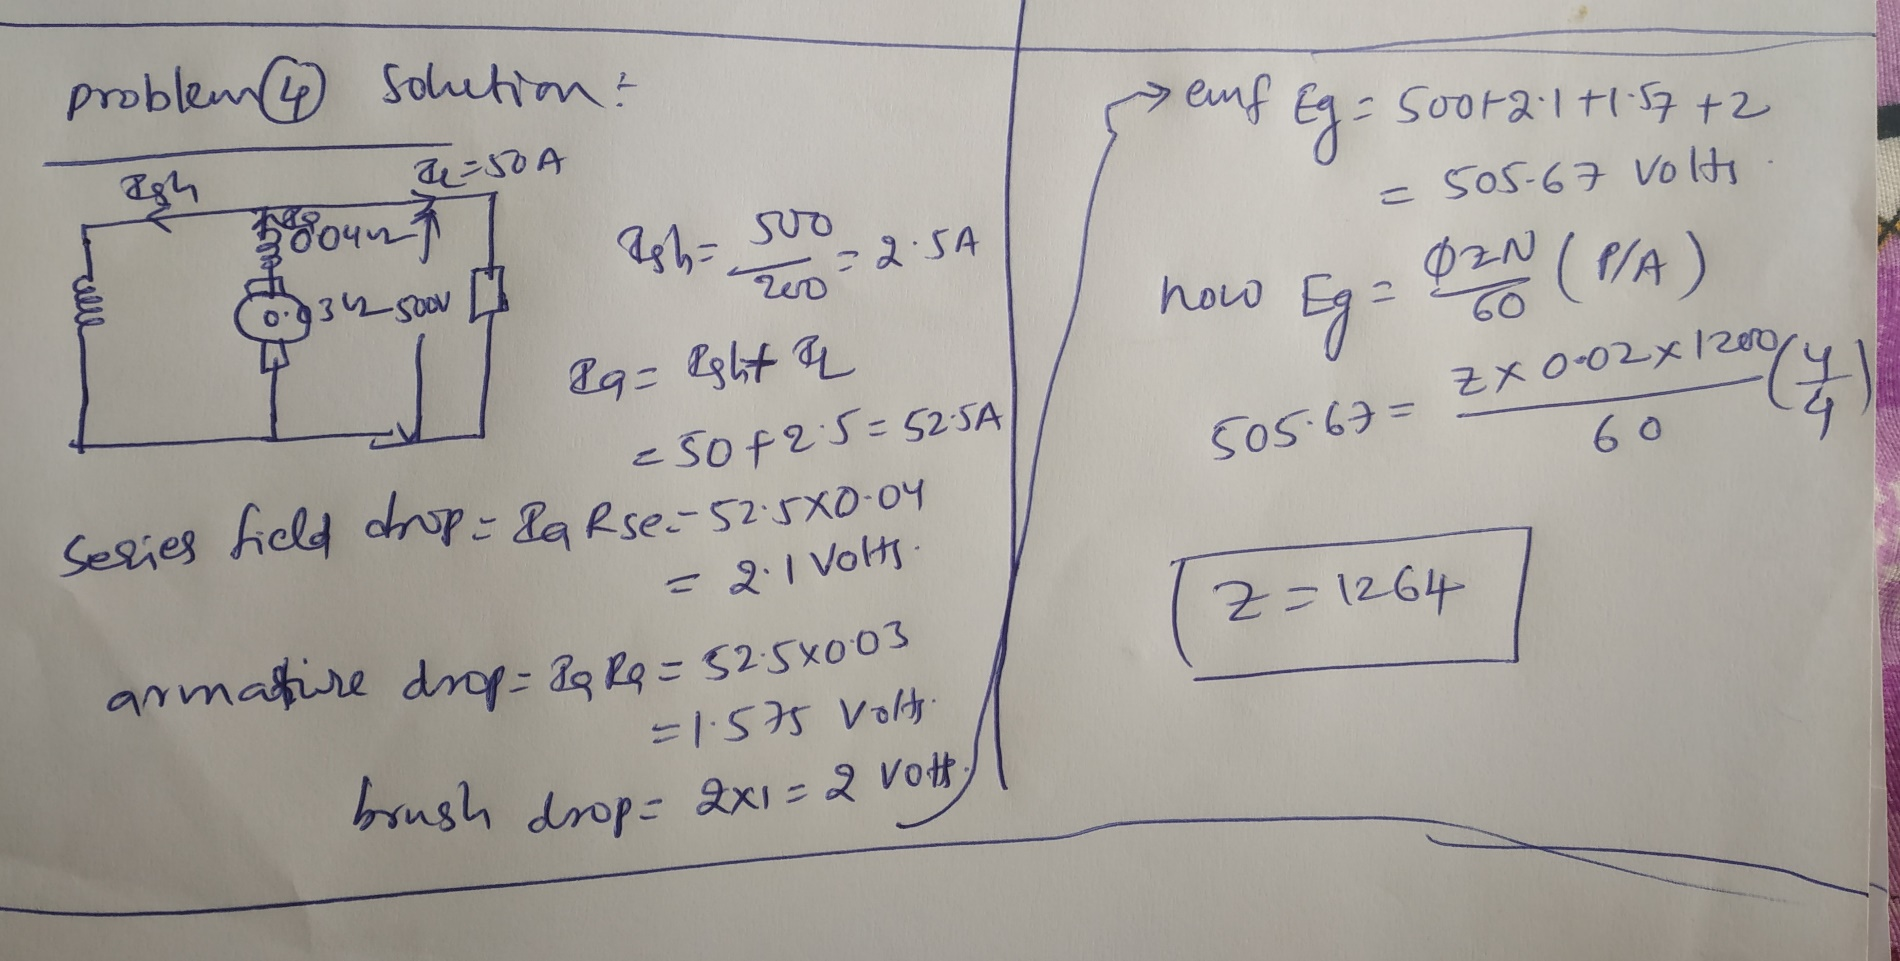 problem ④ Solution:-
Ish
IL=50A
0.04Ω
0.03Ω
500V
Ish = 500/200 = 2.5A
Ia = Ish + IL
= 50 + 2.5 = 52.5A
Series field drop = Ia Rse = 52.5×0.04
= 2.1 Volts.
armature drop = Ia Ra = 52.5×0.03
= 1.575 Volts.
brush drop = 2×1 = 2 Volts.
→ emf Eg = 500+2.1+1.57+2
= 505.67 Volts.
now Eg = ϕZN/60 (P/A)
505.67 = Z×0.02×1200/60 (4/4)
Z = 1264